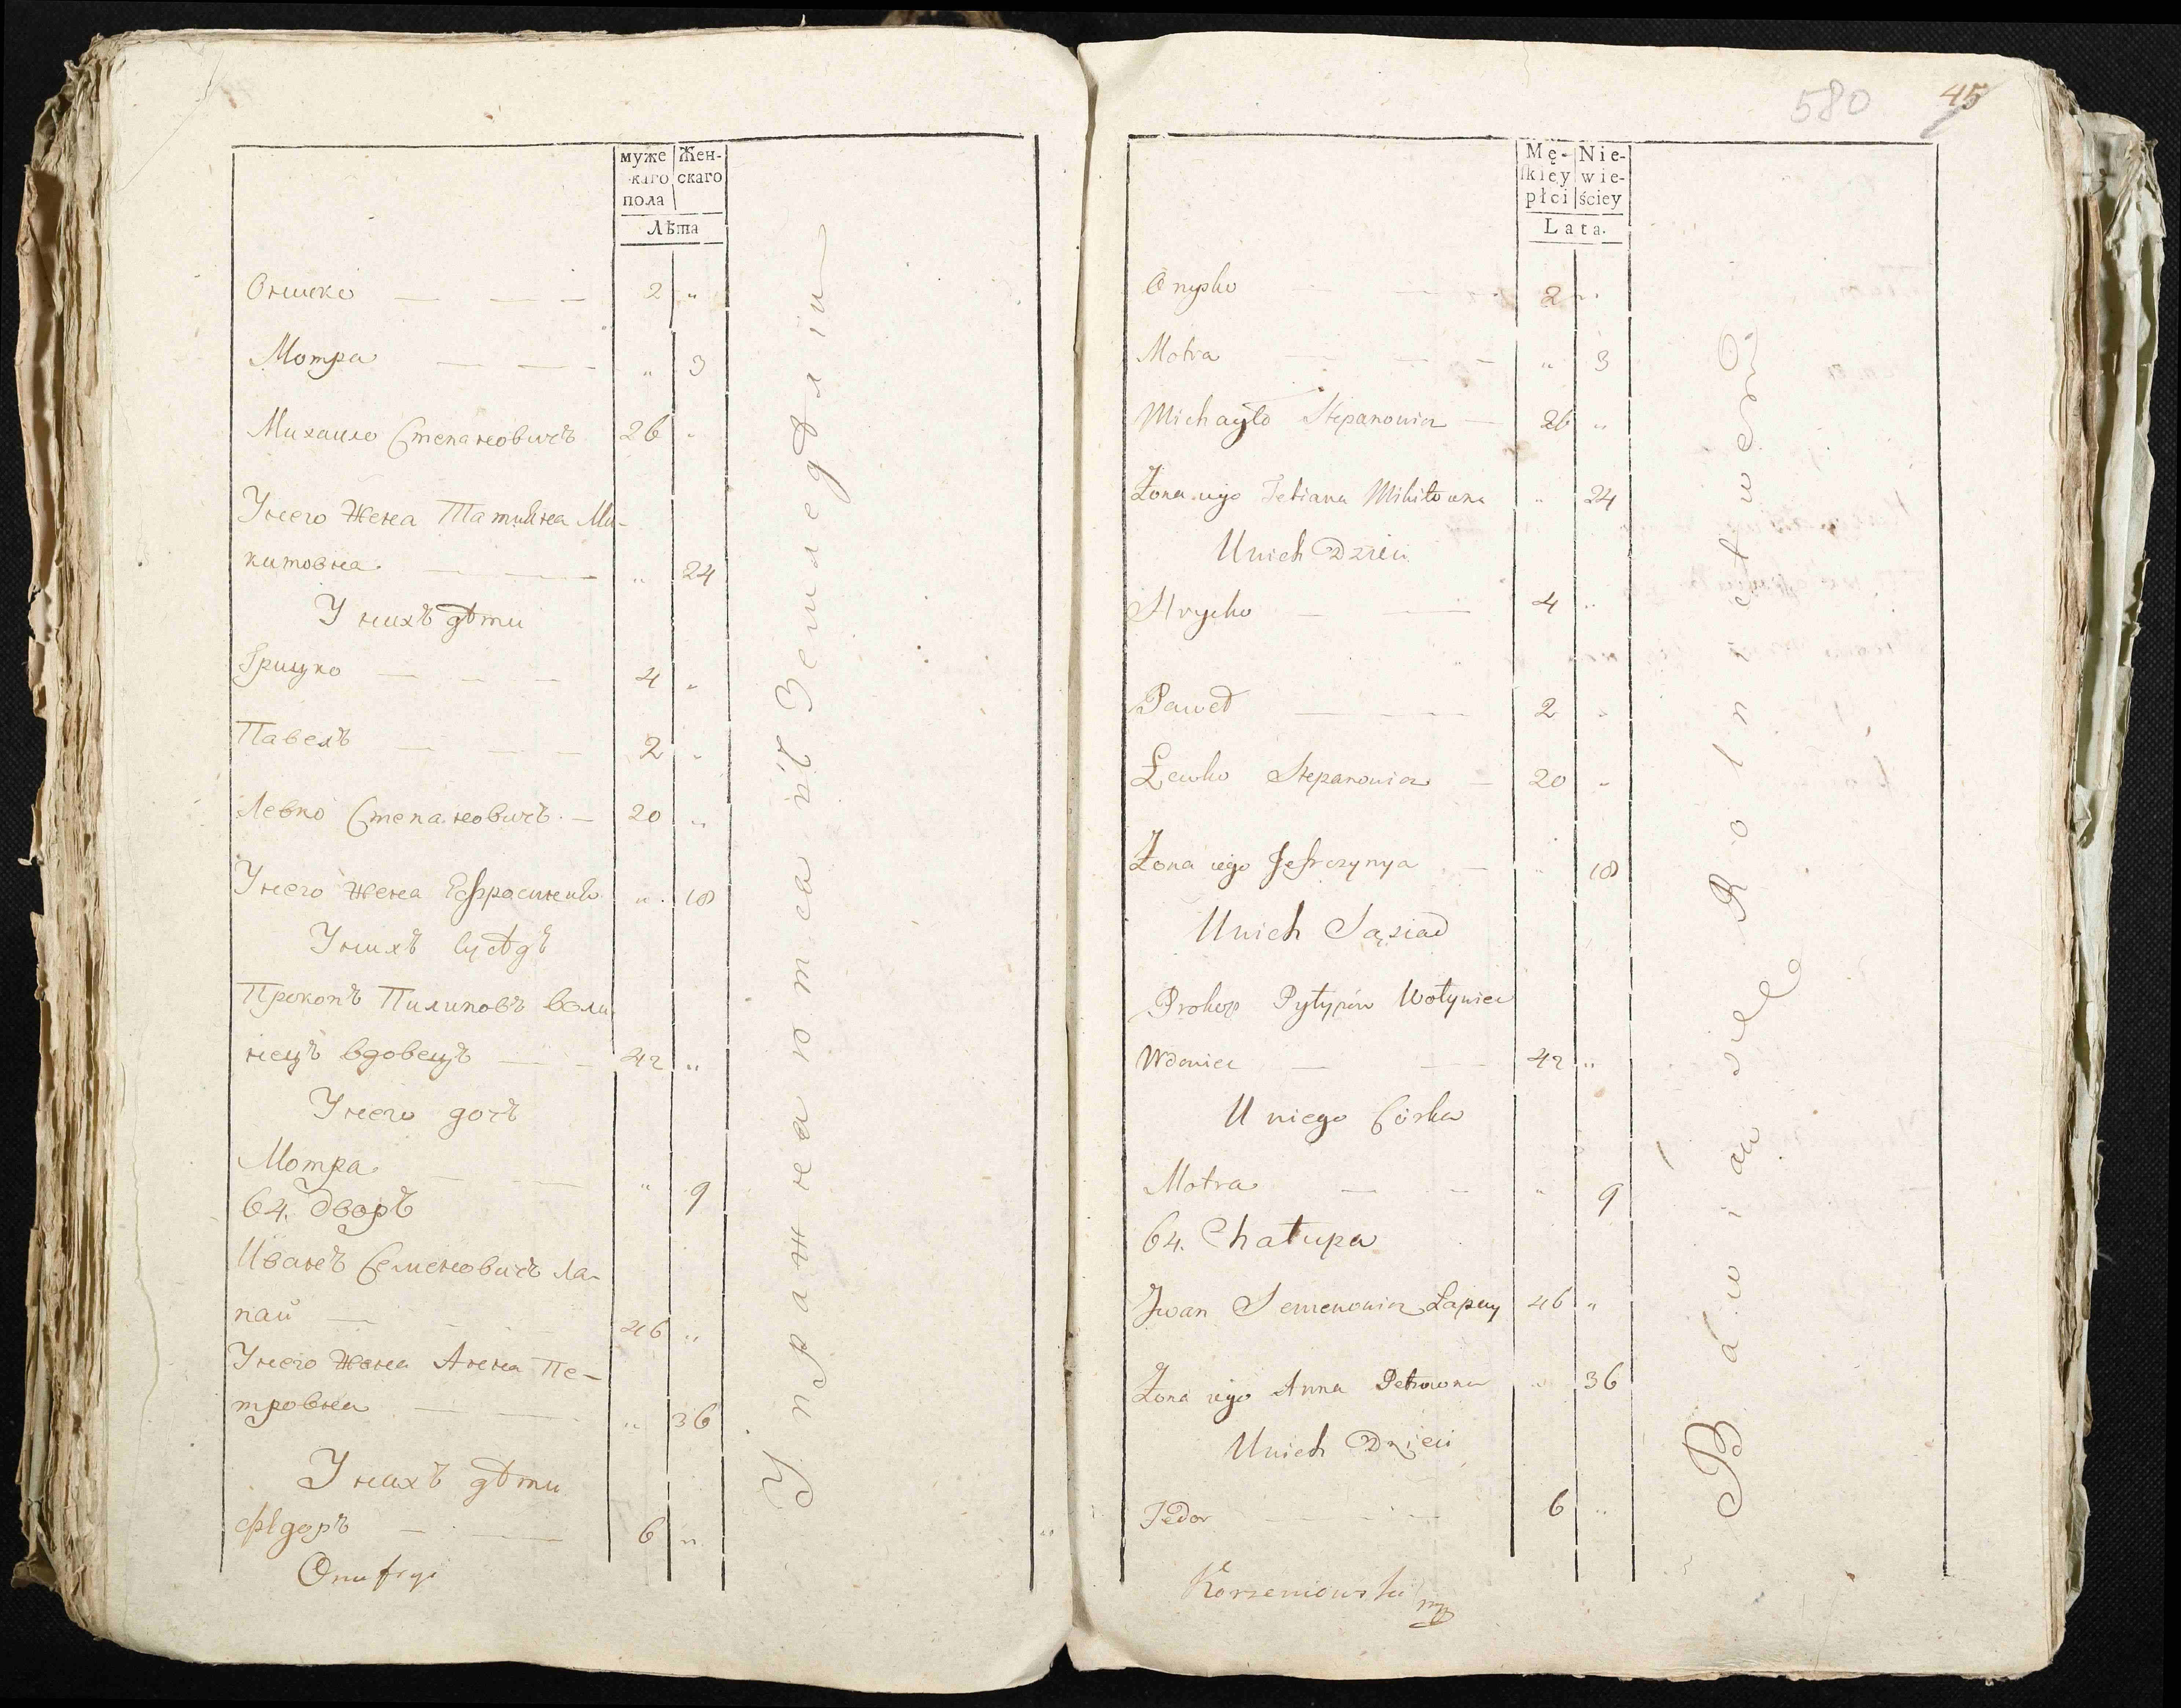 муже
-каго
пола
Жен-
скаго
Лѣта
Онишко — — — 2 „
Мотра — — — „ 3
Михаило Степановичъ 26 „
Унего Жена Татияна Ми-
китовна — — — „ 24
У нихъ дѣти
Грицко — — — 4 „
Павелъ — — — 2 „
Левко Степановичъ. — 20 „
Унего жена Ефросинія „ 18
Унихъ Сусѣдъ
Прокопъ Пилиповъ Воли
нецъ вдовецъ — — 42 „
Унего дочъ
Мотра — — „ 9
64. Дворъ
Иванъ Семеновичъ Ла-
пай — — — 46 „
Унего Жена Анна Пе-
тровна — — „ 36
У нихъ дѣти
Ѳедоръ — — 6 „
Onufry
Упражнаютса въ Земледѣліи
580
45
Mę-
skiey
płci
Nie-
wie-
ściey
Lata.
Onysko — — — 2 „
Motra — — — „ 3
Michayło Stepanowicz — 26 „
Żona iego Tetiana Mikitowna „ 24
Unich Dzieci
Hrycko — — 4 „
Paweł — — — 2 „
Lewko Stepanowicz — 20 „
Żona iego Jefrozynya — „ 18
Unich Sąsiad
Prokop Pyłypów Wołyniec
Wdowiec — — — 42 „
U niego Córka
Motra — — „ 9
64. Chałupa
Jwan Semenowicz Łapay 46 „
Żona iego Anna Petrowna „ 36
Unich Dzieci
Fedor — — — 6 „
Korzeniowski mp
Báwią się Rolnictwem